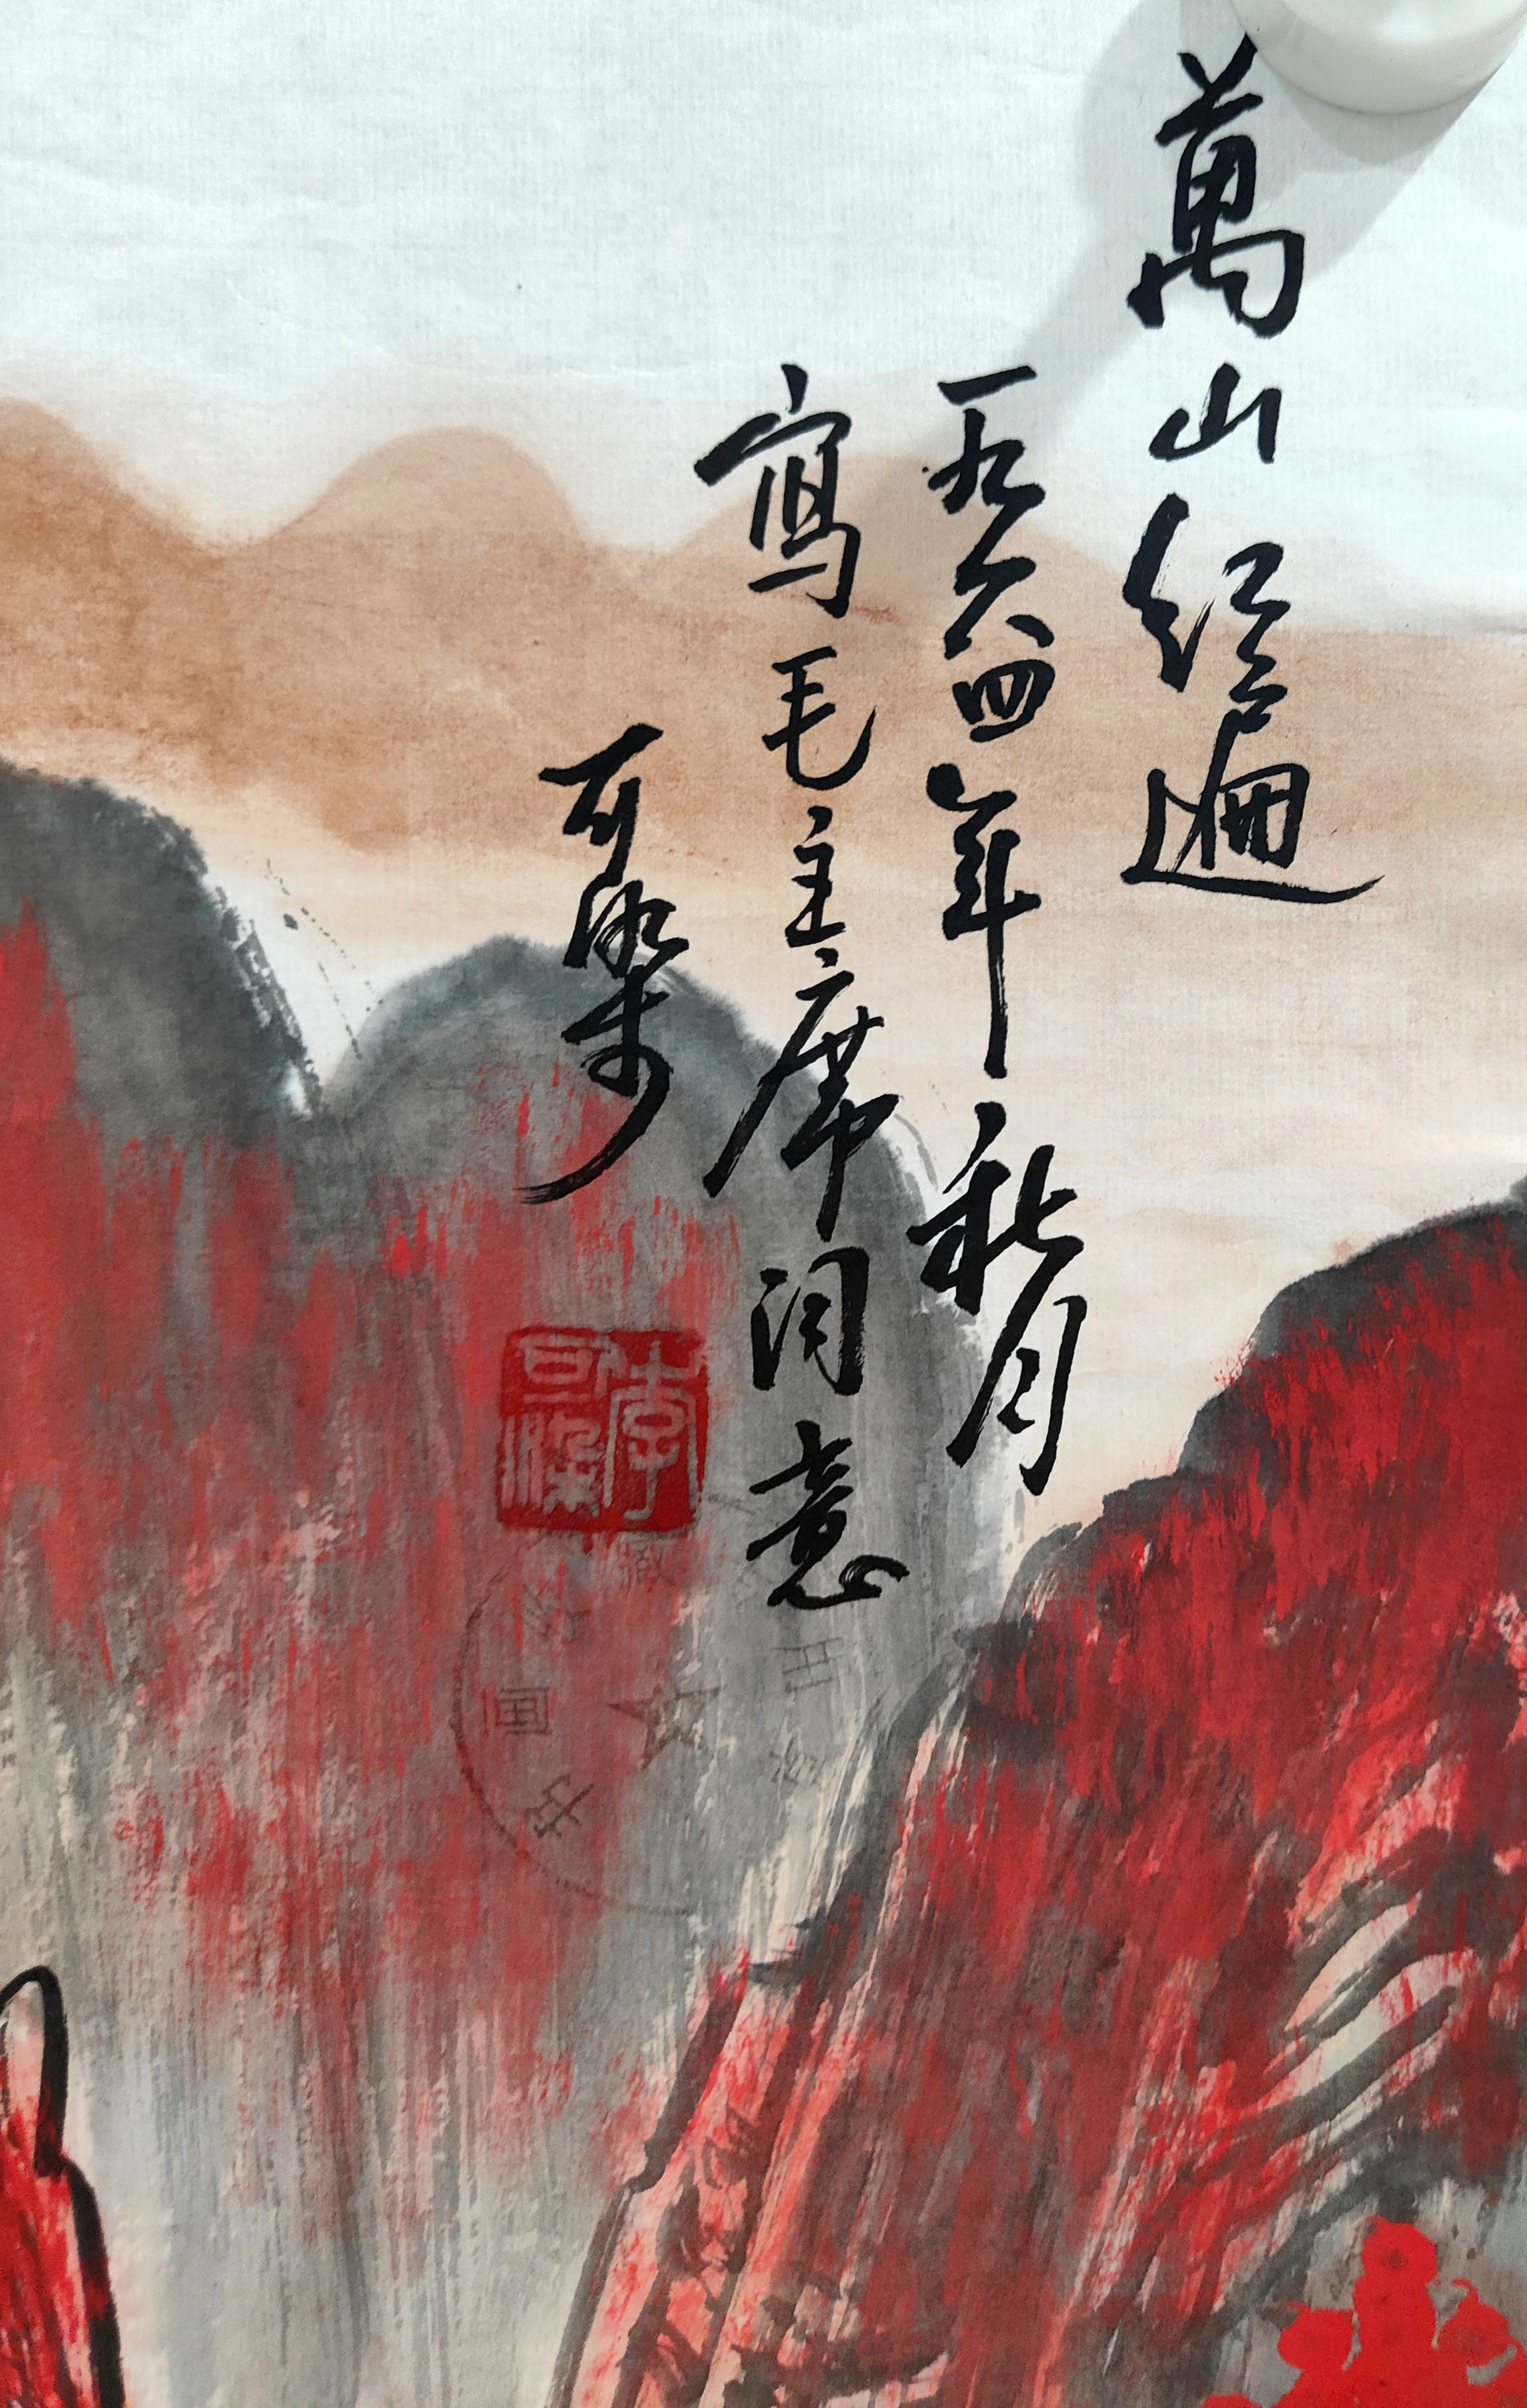 萬山红遍
一九六四年秋月
寫毛主席词意
可染
李可染